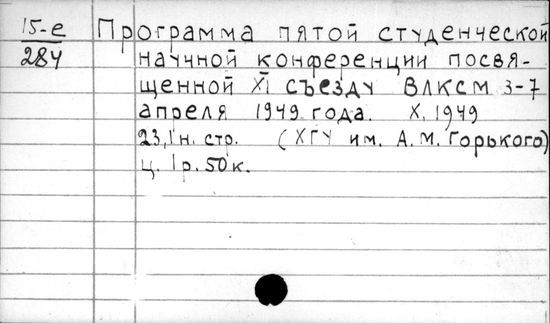 15-е Программа пятой студенческой
284 научной конференции посвя-
щенной XI съезду ВЛКСМ 3-7
апреля 1949 года. Х, 1949
23, 1 н. стр. (ХГУ им. А. М. Горького)
ц. 1 р. 50 к.